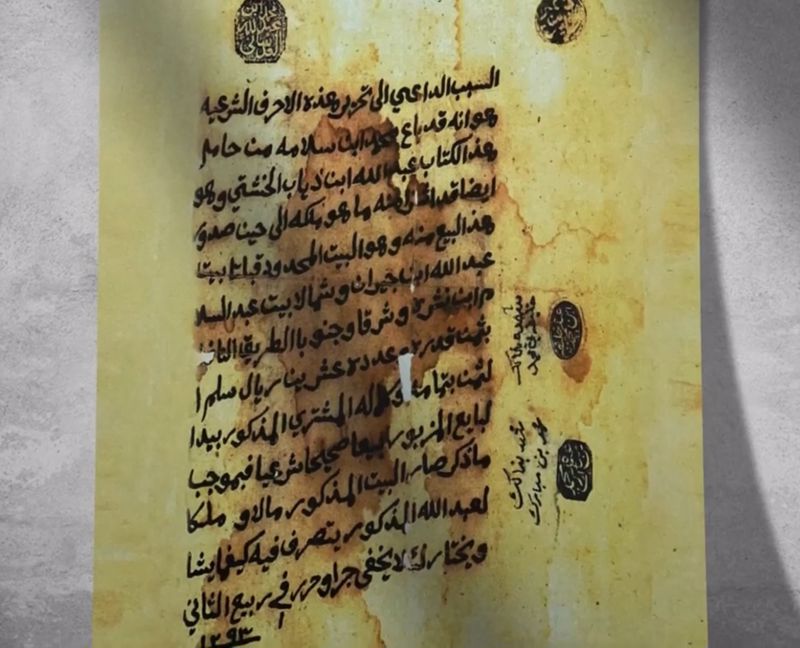 السبب الداعي الى تحرير هذه الاحرف الشرعيه
هو انه قد باع محمد ابن سلامه من حامل
هذا الكتاب عبدالله ابن ذياب الخشتي وهو
ايضا قد اشترا منه ما هو ملكه الى حين صدور
هذا البيع منه وهو البيت المحدود قبلتا بيت
عبدالله ابن جبران وشمالا بيت عبد السلا
م ابن نشره وشرقا وجنوبا الطريق النافذ
بثمن قدره وعدده عشرين ريال سلم ا
لثمن بتمامه وكماله المشتري المذكور بيد ا
لبايع المزبور بيعا صحيحا شرعيا فبموجب
ماذكر صار البيت المذكور مالا و ملكا
لعبدالله المذكور يتصرف فيه كيفما يشا
ويختار كي لا يخفى جرا وحرر في ربيع الثاني
١٢٩٣
شهد بذالك
محمد بن مبارك